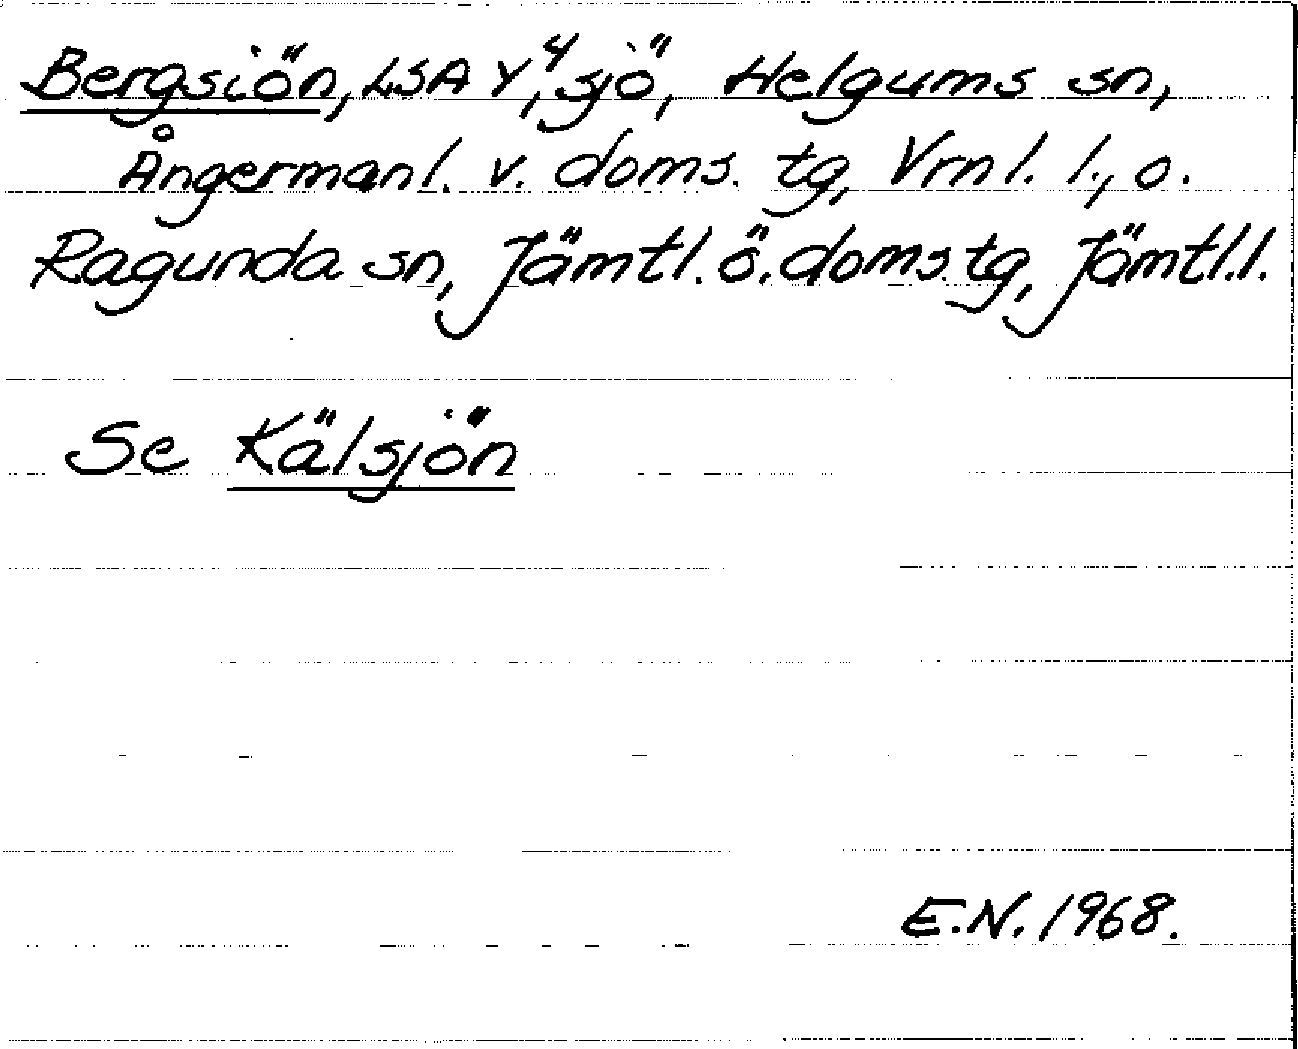 Bergsiön, LSA Y⁴, sjö, Helgums sn,
Ångermanl. v. doms. tg, Vrnl. l., o.
Ragunda sn, Jämtl. ö. doms. tg, Jämtl. l.
Se Kälsjön
E.N. 1968.